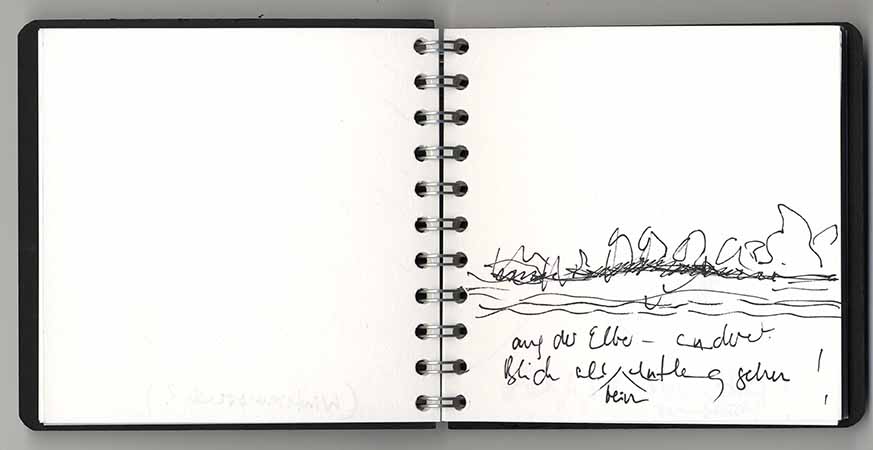 auf der Elbe – anderer
Blick als entlang gehen !
beim